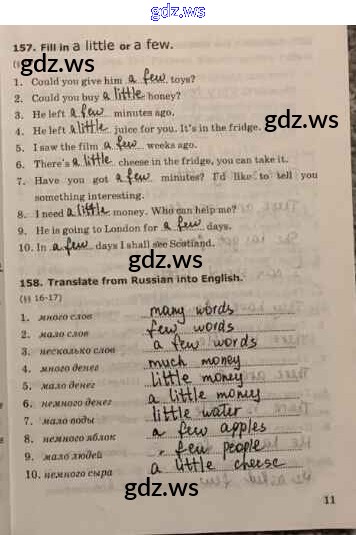 gdz.ws
157. Fill in a little or a few.
1. Could you give him a few toys?
gdz.ws
2. Could you buy a little honey?
3. He left a few minutes ago.
gdz.ws
4. He left a little juice for you. It's in the fridge.
5. I saw the film a few weeks ago.
6. There's a little cheese in the fridge, you can take it.
7. Have you got a few minutes? I'd like to tell you
something interesting.
8. I need a little money. Who can help me?
9. He is going to London for a few days.
10. In a few days I shall see Scotland.
gdz.ws
158. Translate from Russian into English.
(§§ 16-17)
1. много слов many words
2. мало слов few words
3. несколько слов a few words
4. много денег much money
5. мало денег little money
6. немного денег a little money
gdz.ws
7. мало воды little water
8. немного яблок a few apples
9. мало людей few people
10. немного сыра a little cheese
gdz.ws
11
gdz.ws